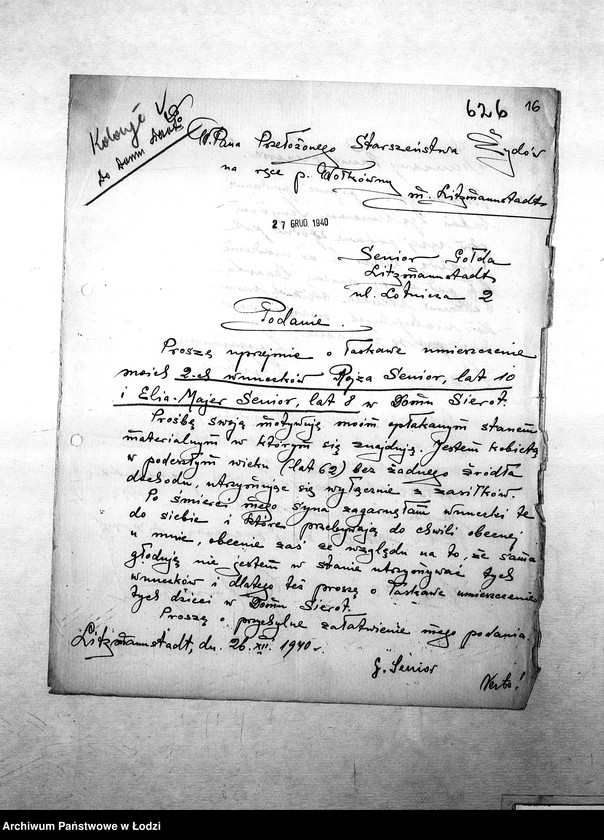 626 16
Kolonje
do Domu Sierot
W. Pana Przełożonego Starszeństwa Żydów
na ręce p. Wołkówny
m. Litzmannstadt
27 GRUD. 1940
Senior Gołda
Litzmannstadt
ul. Lotnicza 2
Podanie.
Proszę uprzejmie o łaskawe umieszczenie
moich 2-ch wnuczków Rojza Senior, lat 10
i Elia-Majer Senior, lat 8 w Domu Sierot.
Prośbę swoją motywuję moim opłakanym stanem
materialnym w którym się znajduję. Jestem kobietą
w podeszłym wieku (lat 62) bez żadnego źródła
dochodu, utrzymując się wyłącznie z zasiłków.
Po śmierci mego syna zagarnęłam wnuczki te
do siebie i które przebywają do chwili obecnej
u mnie, obecnie zaś ze względu na to, że sama
głoduję nie jestem w stanie utrzymywać tych
wnuczków i dlatego też proszę o łaskawe umieszczenie
tych dzieci w Domu Sierot.
Proszę o przychylne załatwienie mego podania.
Litzmannstadt, dn. 26.XII. 1940 r.
G. Senior
Verte!
Archiwum Państwowe w Łodzi